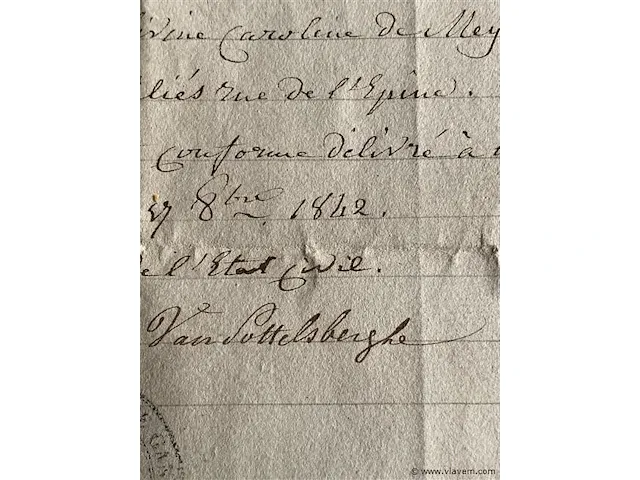 Caroline de Mey
liés rue de l'Epine.
conforme délivré à
27 8bre 1842.
de l'Etat Civil.
Van Pottelsberghe
GA
© www.vlavem.com